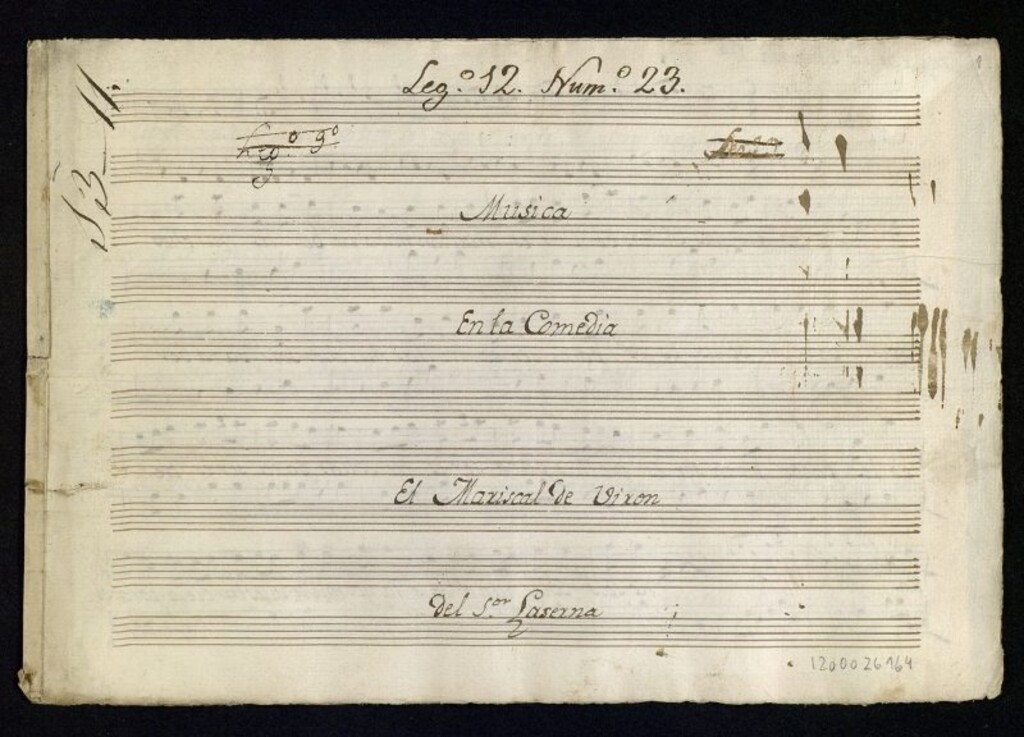 Leg.º 12. Num.º 23.
Leg.º 9º
Musica
En la Comedia
El Mariscal de Viron
Del S.or Laserna
1200026164